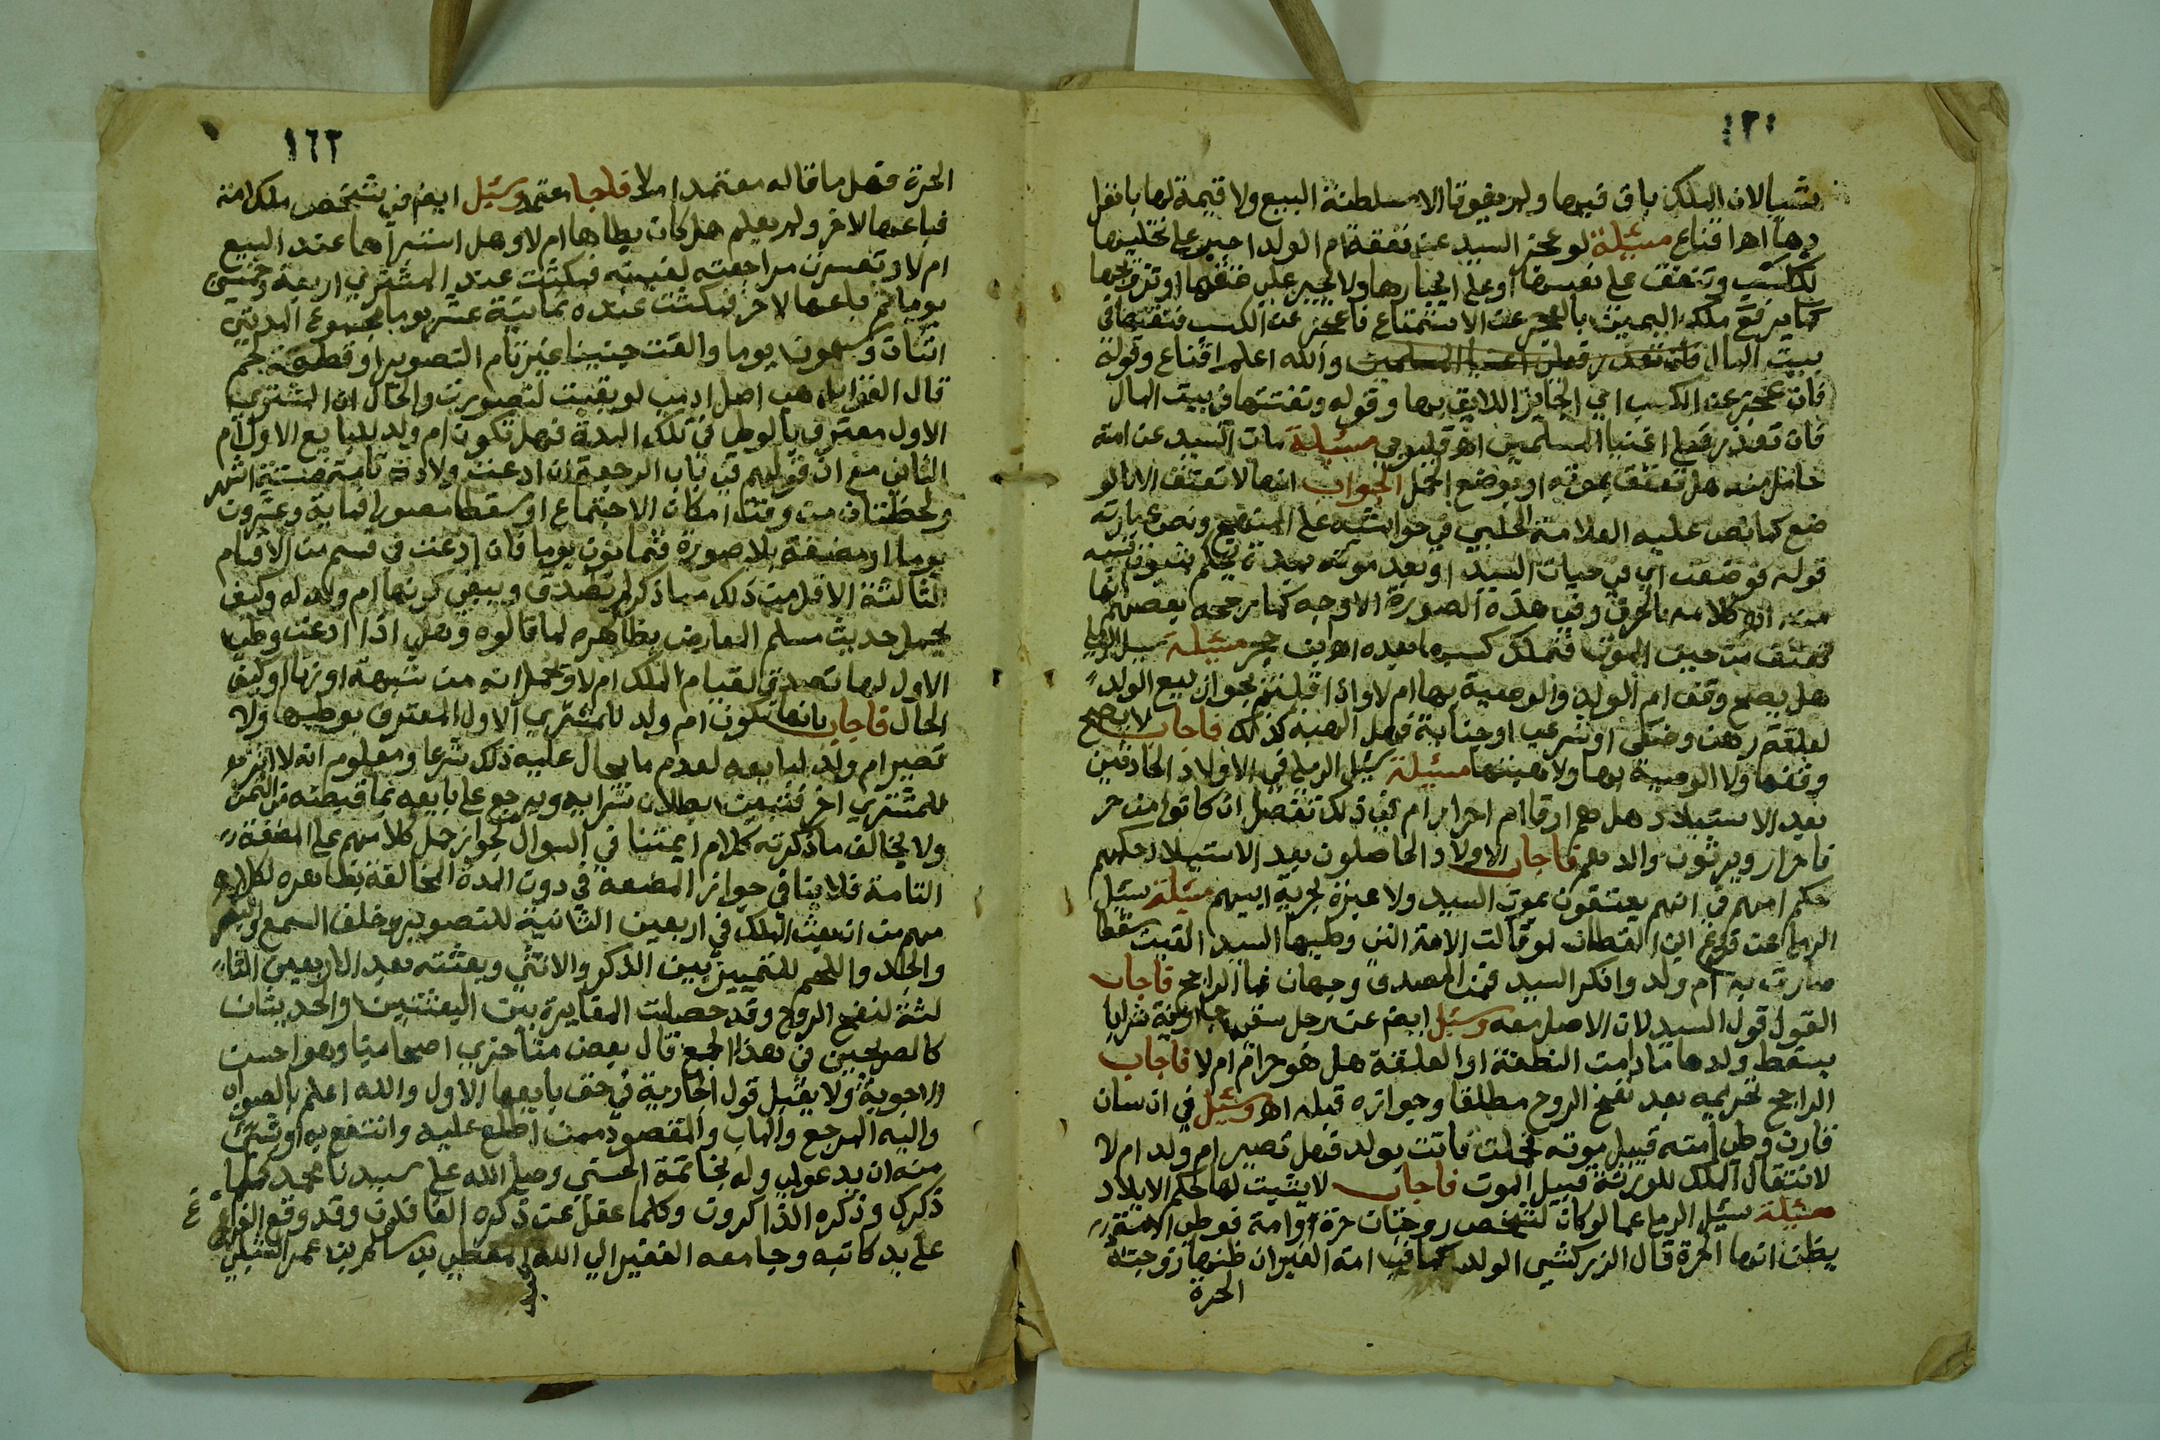 شيا لان الملك باق فيها ولم يفوتها الا سلطنة البيع ولا قيمة لها بانفرا
دها اهـ اقناع مسئلة لو عجز السيد عن نفقة ام الولد اجبر على تخليتها
لتكتسب وتنفق على نفسها او على ايجارها ولا يجبر على عتقها او تزويجها
كما يرفع ملك اليمين بالعجز عن الاستمتاع فان عجز عن الكسب فنفقتها في
بيت المال فان تعذر فعلى اغنيا المسلمين والله اعلم اقناع وقوله
فان عجز عن الكسب اي الجايز اللايق بها وقوله ونفقتها في بيت المال
فان تعذر فعلى اغنيا المسلمين اهـ قليوبي مسئلة مات السيد عن امة
حامل منه هل تعتق بموته او بوضع الحمل الجواب انها لا تعتق الا بالو
ضع كما نص عليه العلامة الحلبي في حواشيه على المنهج ونص عبارته
قوله فوضعت اي في حيات السيد او بعد موته بمدة يحكم بثبوت نسبه
منه اهـ كلامه بالحرف وفي هذه الصورة الاوجه كما رجحه بعضهم انها
تعتق من حين الموت فتملك كسبها بعده اهـ ابن حجر مسئلة سيل الرملي
هل يصح وقف ام الولد والوصية بها ام لا واذا قبلتم بجواز بيع الولد
لعلقة رهن وضعي او شرعي او جناية فهل الهبه كذلك فاجاب لا يصح
وقفها ولا الوصية بها ولا هبتها مسئلة سيل الرملي في الاولاد الحادثين
بعد الاستيلاد هل هم ارقا ام احرار ام في ذلك تفصيل ان كانوا من حر
فاحرار ويرثون والدهم فاجاب الاولاد الحاصلون بعد الاستيلاد حكمهم
حكم امهم في انهم يعتقون بموت السيد ولا عبرة بحرية ابيهم مسئلة سئيل
الرملي عن فروع ابن القطان لو قالت الامة التي وطيها السيد القيت سقطا
صارت به ام ولد وانكر السيد فمن المصدق وجهان فما الراجح فاجاب
القول قول السيد لان الاصل معه وسئيل ايض عن رجل سقى جارية شرابا
يسقط ولدها مادامت النطفة او العلقة هل هو حرام ام لا فاجاب
الراجح تحريمه بعد نفخ الروح مطلقا وجوازه قبله اهـ وسئيل في انسان
قارن وطي امته قبيل موته فحملت فاتت بولد فهل تصير ام ولد ام لا
لانتقال الملك للورثة قبيل الموت فاجاب لا يثبت لها حكم الايلاد
مسئلة سيئل الرملي عما لو كان لشخص زوجتان حرة وامة فوطي الامة
يظن انها الحرة قال الزركشي الولد كما في امة الغير ان ظنها زوجته
الحرة
١٦٢
الحرة فهل ما قاله معتمد ام لا فاجاب معتمد وسئيل ايض في شخص ملك امة
فباعها لاخر ولم يعلم هل كان يطاها ام لا وهل استبراها عند البيع
ام لا وتعسرت مراجعته لغيبته فمكثت عند المشتري اربعة وخمسين
يوما ثم باعها لاخر فمكثت عنده ثمانية عشر يوما مجموع المدتين
اثنان وسبعون يوما والقت جنينا غير تام التصوير او قطعة لحم
قال القوابل هي اصل ادمي لو بقيت لتصورت والحال ان المشتري
الاول معترف بالوطي في تلك المدة فهل تكون ام ولد للبايع الاول ام
الثاني مع ان قولهم في باب الرجعة ان ادعت ولادة تامة فستة اشهر
ولحظتان من وقت امكان الاجتماع او سقط مصور فماية وعشرون
يوما او مضغة بلا صورة فثمانون يوما فان ادعت في قسم من الاقسام
الثالثة الاقل من ذلك مما ذكر لم تصدق وينبغي كونها ام ولد له وكيف
يحمل حديث مسلم المعارض بظاهره لما قالوه وهل اذا ادعت وطي
الاول لها تصدق لقيام الملك ام لا ويحمل انه من شبهة او زنا وكيف
الحال فاجاب بانها تكون ام ولد للمشتري الاول المعترف بوطيها ولا
تصير ام ولد لبايعه لعدم ما يحال عليه ذلك شرعا ومعلوم انه لا
للمشتري اخر فتبين بطلان شرايه ويرجع على بايعه بما قبضه من الثمن
ولا يخالف ما ذكرته كلام ايمتنا في السوال لجواز حمل كلامهم على المضغة
التامة فلا ينافي جواز المضغه في دون المدة المخالفة بظاهره لكلا
مهم من ان بعث الملك في اربعين الثانية للتصوير وخلق السمع والبصر
والجلد واللحم للتمييز بين الذكر والانثي وبعثته بعد الاربعين الثا
لثة لنفخ الروح وقد حصلت المغايرة بين البعثتين والحديثان
كالصريحين في هذا الجمع قال بعض متاخري اصحابنا وهو احسن
الاجوبة ولا يقبل قول الجارية في حق بايعها الاول والله اعلم بالصواب
واليه المرجع والماب والمقصود ممن اطلع عليه وانتفع به او بشي
منه ان يدعو لي وله بخاتمة الحسني وصلى الله على سيدنا محمد كلما
ذكرك وذكره الذاكرون وكلما غفل عن ذكره الغافلون وقد وقع الفراغ
على يد كاتبه وجامعه الفقير الي الله بن سالم بن عمر الشبلي